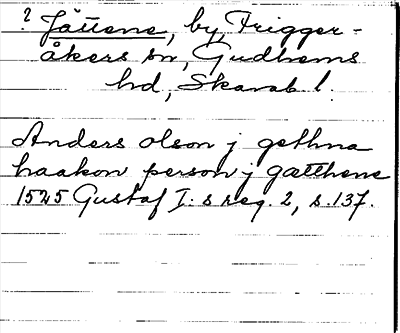 ? Jättene, by, Frigger-
åkers sn, Gudhems
hd, Skarab. l.
Anders olson j gethna
haakon person j gætthene
1525 Gustaf I:s reg. 2, s. 137.